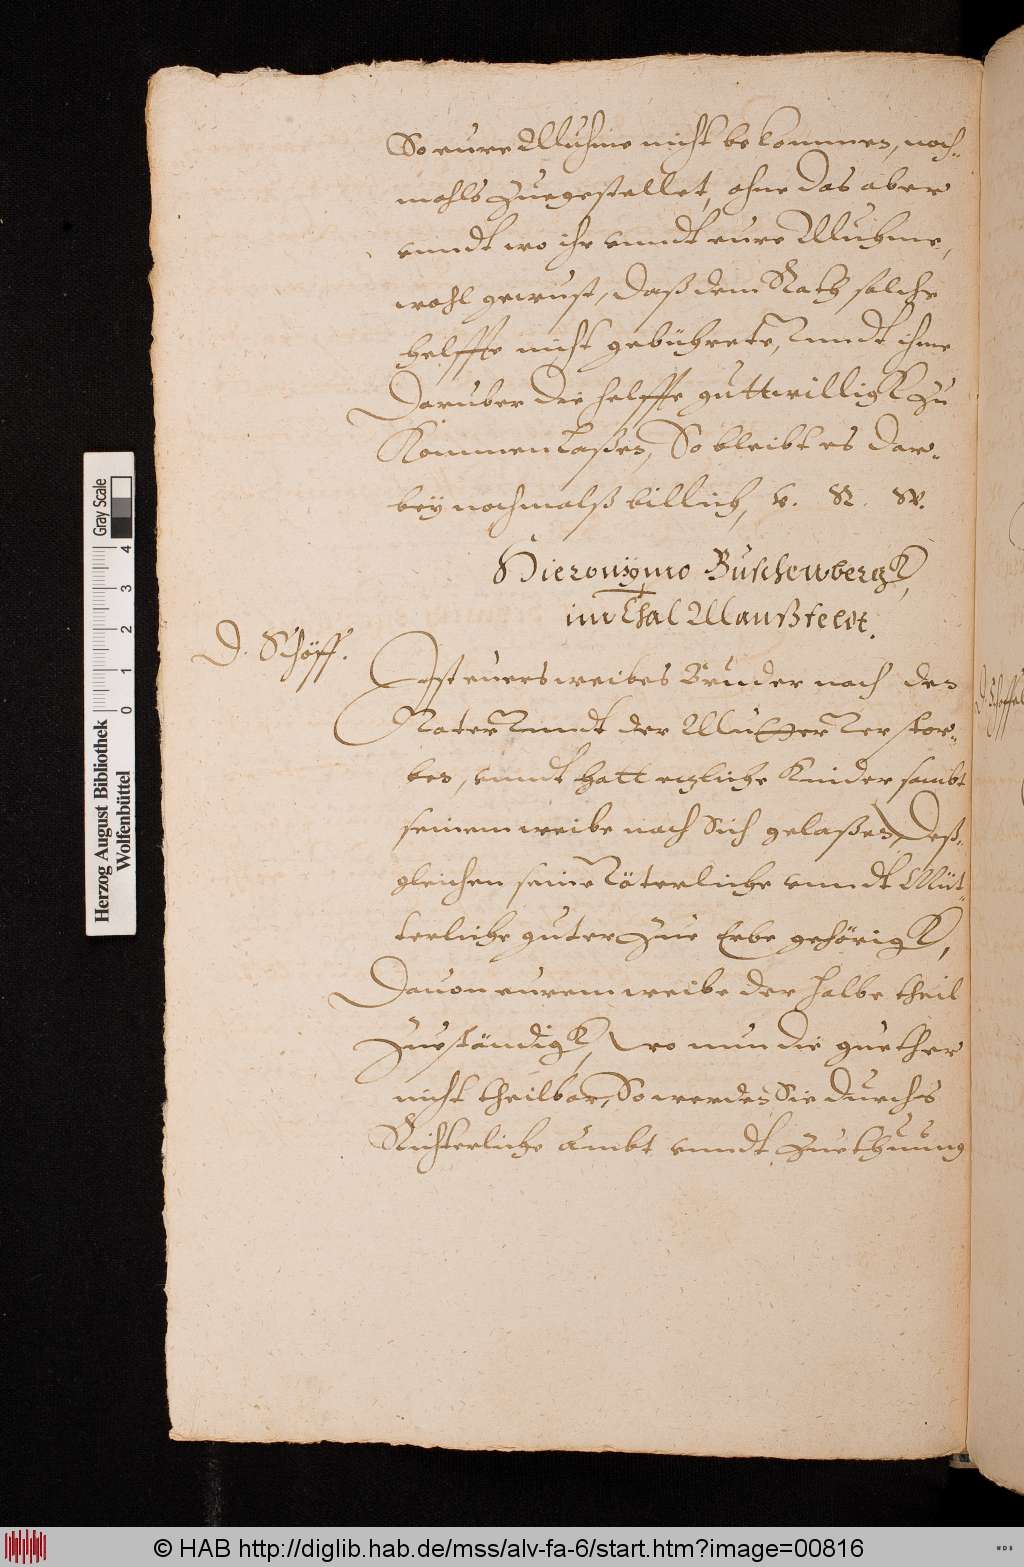 So eure Muhme nicht bekommen, noch-
mahls zuegestellet, ohne das aber
vnndt wo ihr vnndt eure Muhme,
wohl gewust, daß dem Rath solche
helffte nicht gebührete, Vnndt ihme
Daruber die helffte guttwilligk zu
Kommen laßen, So bleibt es dar-
bey nochmalß billich, V. R. W.
Hieronÿmo Buschenbergk,
im Thal Manßfeldt.
D. Schöff.
Ist eures weibes Bruder nach des
Vater Vnndt der Mutter Verstor-
ben, vnndt hatt etzliche Kinder sambt
seinem weibe nach Sich gelaßen, Deß-
gleichen seine Väterliche vnndt Müt-
terliche guter zue Erbe gehörigk,
Dauon eurem weibe der halbe theil
Zueständigk, wo nun die guether
nicht theilbar, So werden Sie durchs
Richterliche Ambt vnndt zuethuung
Herzog August Bibliothek
Wolfenbüttel
0 1 2 3 4
Gray Scale
© HAB http://diglib.hab.de/mss/alv-fa-6/start.htm?image=00816